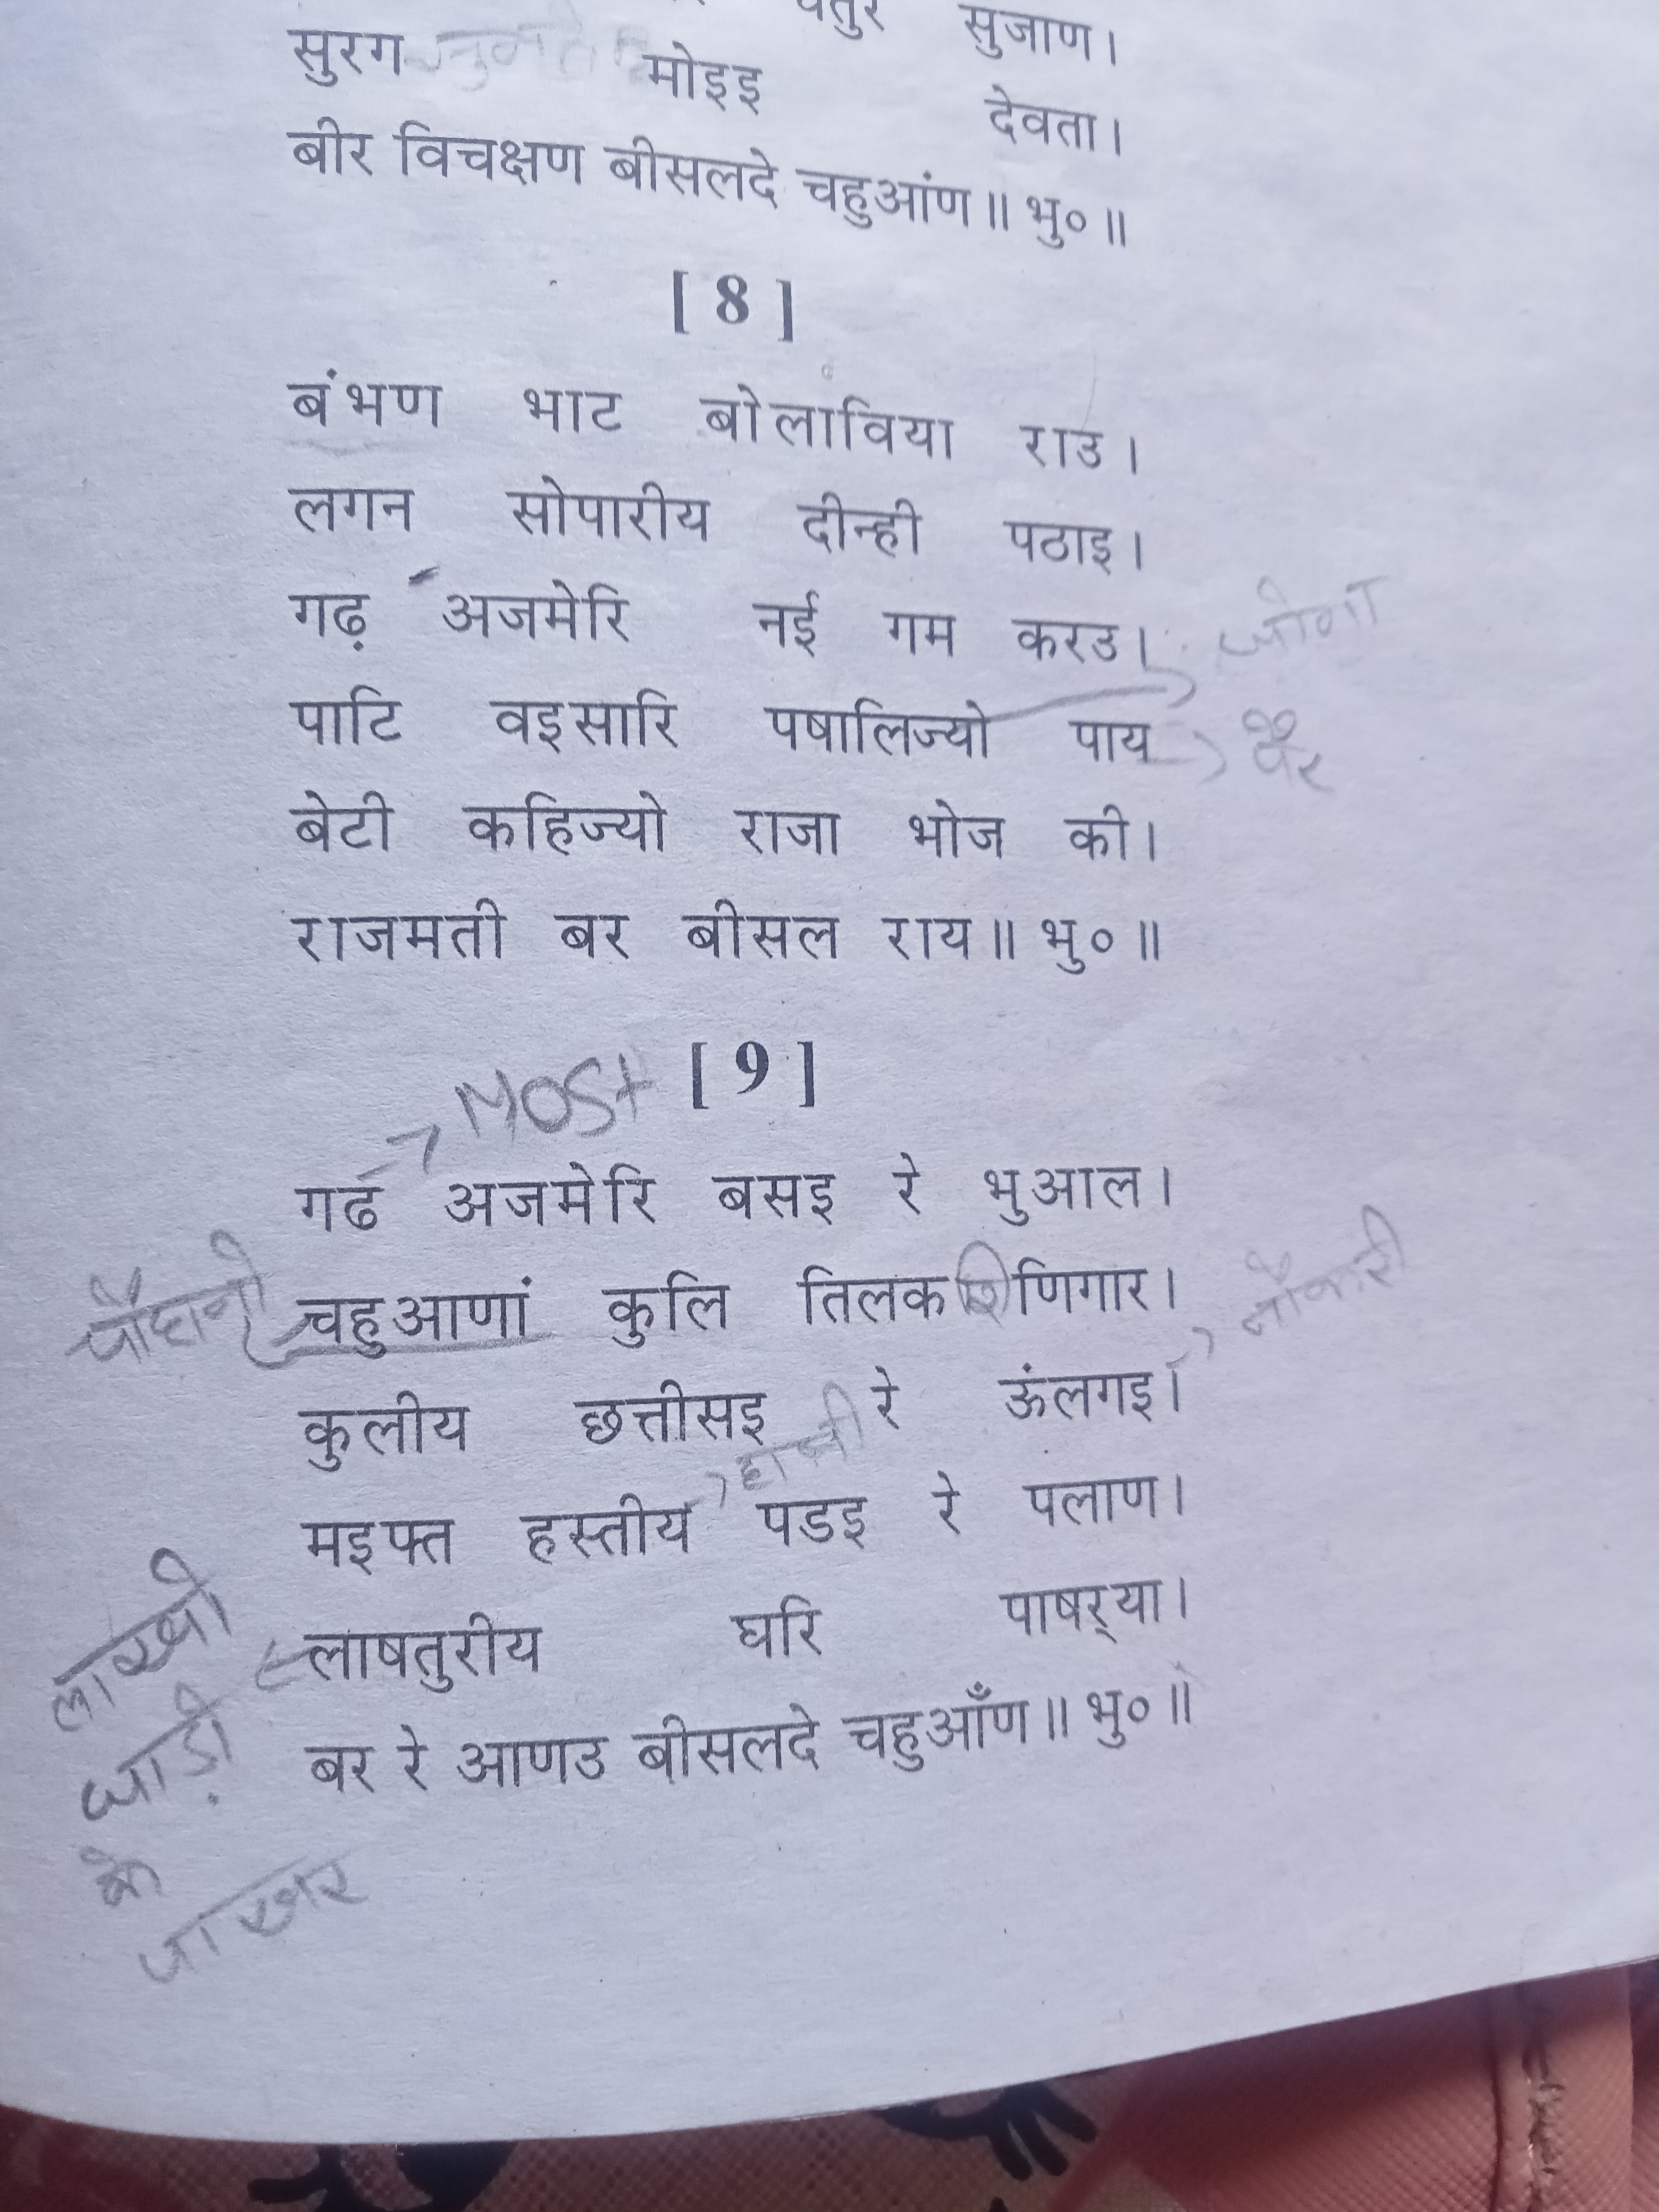 चतुर सुजाण।
सुरग मोइइ देवता।
बीर विचक्षण बीसलदे चहुआंण॥ भु०॥
[ 8 ]
बंभण भाट बोलाविया राउ।
लगन सोपारीय दीन्ही पठाइ।
गढ़ अजमेरि नई गम करउ।
पाटि वइसारि पषालिज्यो पाय पैर
बेटी कहिज्यो राजा भोज की।
राजमती बर बीसल राय॥ भु०॥
MOST [ 9 ]
गढ अजमेरि बसइ रे भुआल।
चौहानो चहुआणां कुलि तिलक शिणिगार।
नौकारी
कुलीय छत्तीसइ रे ऊंलगइ।
हाथी
मइफ्त हस्तीय पडइ रे पलाण।
लाखो
लाषतुरीय घरि पाषर्‌या।
बर रे आणउ बीसलदे चहुआँण॥ भु०॥
के
पाखर